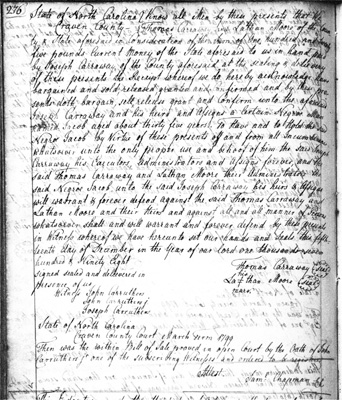 276
State of North Carolina Know all Men by these presents that We
Craven County Thomas Carraway and Nathan Moore of the
State aforesaid in Consideration of the Sum of one hundred and
five pounds current money of the State aforesaid to us in hand
by Joseph Carraway of the County aforesaid, at the sealing & delivery
of these presents the Receipt whereof we do hereby acknowledge have
bargained and sold released granted and confirmed and by these pre
sents doth bargain sell release grant and Confirm unto the aforesaid
Joseph Carraway and his heirs and Assigns a Certain Negroe
Jacob aged about thirty five years. To Have and to Hold the
Negroe Jacob by virtue of these presents of and from all Incumbrances
whatsoever unto the only proper use and behoof of him the said
Carraway his Executors, Administrators and Assigns forever, and the
said Thomas Carraway and Nathan Moore their Administrators the
said Negroe Jacob, unto the said Joseph Carraway his heirs & Assigns
will warrant & forever defend against the said Thomas Carraway and
Nathan Moore and their Heirs and against all and all manner of
whatsoever shall and will warrant and forever defend by these presents
in Witness whereof we have hereunto set our hands and Seals this fif
teenth day of December in the Year of our Lord one thousand seven
hundred & Ninety Eight
Thomas Carraway (seal)
signed sealed and delivered in
his
presence of us
Nathan Moore (seal)
Witness John Carruthers
mark
John Carruthers
Joseph Carruthers
State of North Carolina
Craven County Court March Term 1799
Then was the within Bill of Sale proved in open Court by the Oath of John
Carruthers one of the subscribing Witnesses and ordered to be
Attest.
Sam. Chapman